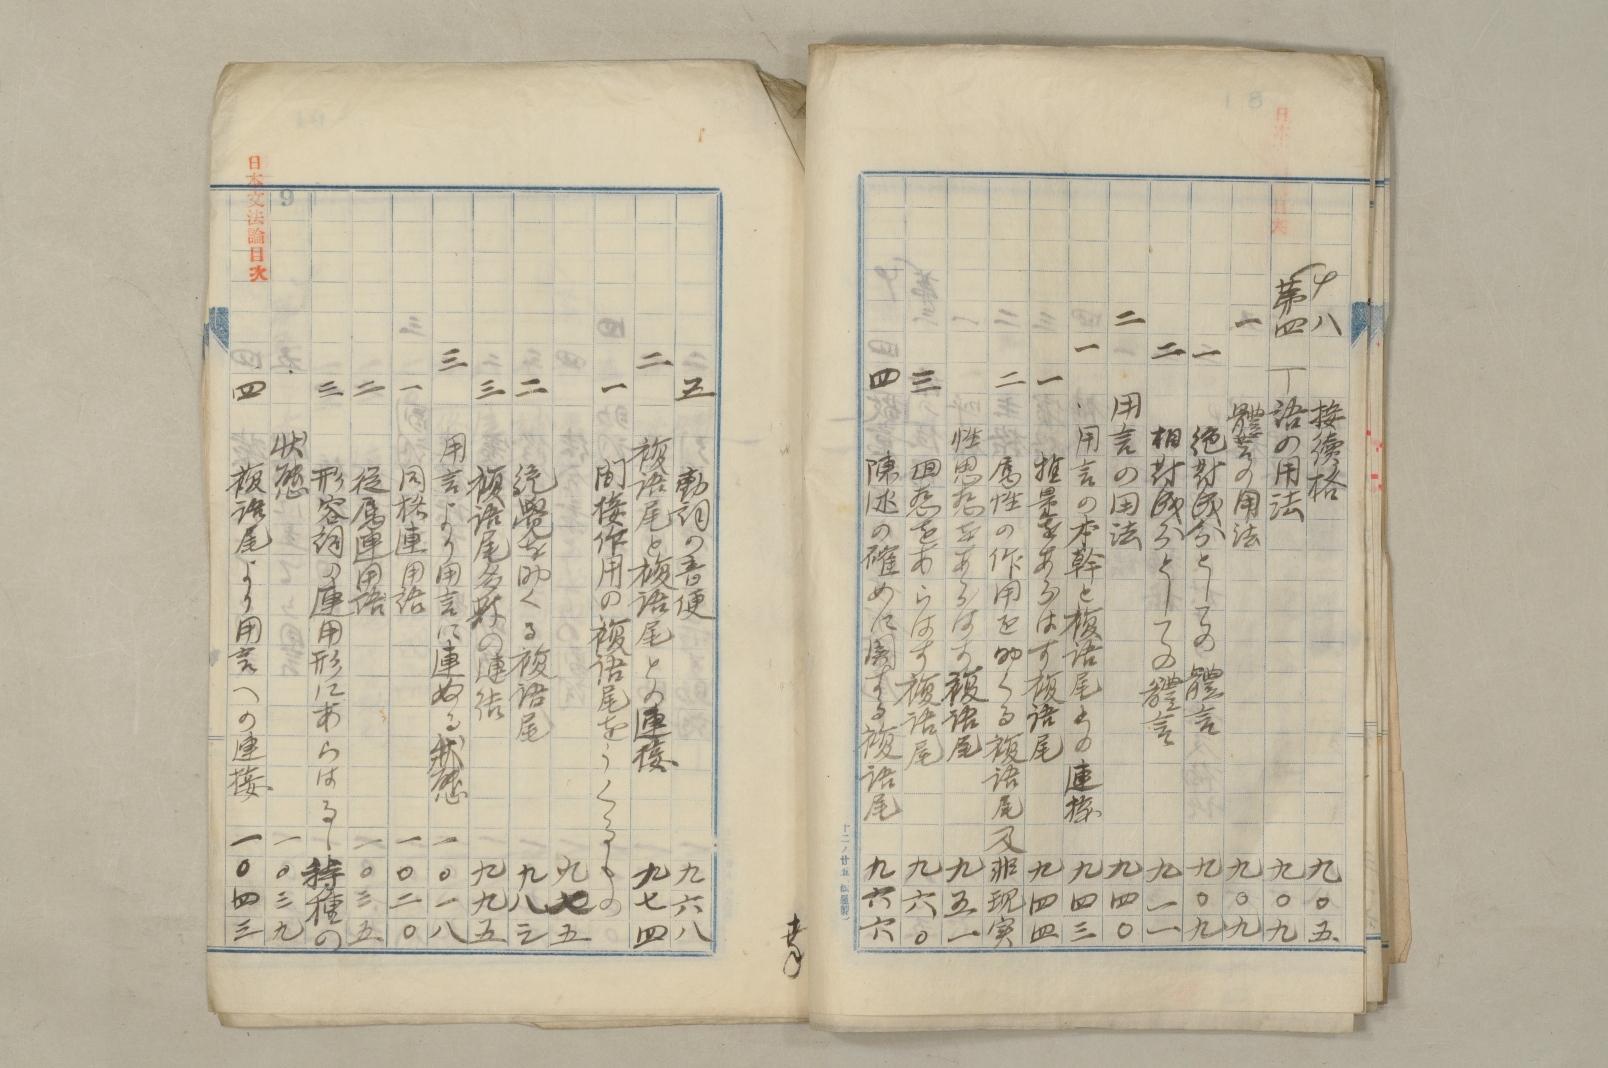 十八 接續格 九〇五
第四 丁 語の用法 九〇九
一 體言の用法 九〇九
一 絶對成分としての體言 九〇九
二 相對成分としての體言 九一一
二 用言の用法 九四〇
一 用言の本幹と複語尾との連接 九四三
一 推量をあらはす複語尾 九四四
二 属性の作用を助くる複語尾及非現実
性思想をあらはす複語尾 九五一
三 回想をあらはす複語尾 九六〇
四 陳述の確めに関する複語尾 九六六
十二ノ廿五
日本文法論目次
9
五 動詞の音便 九六八
二 複語尾と複語尾との連接 九七四
一 間接作用の複語尾をうくるもの
九七五
二 統覺を助くる複語尾 九八三
三 複語尾多数の連結 九九五
三 用言より用言に連ぬる状態 一〇一八
一 同格連用語 一〇二〇
二 從属連用語 一〇三五
三 形容詞の連用形にあらはるゝ特種の
状態 一〇三九
四 複語尾より用言への連接 一〇四三